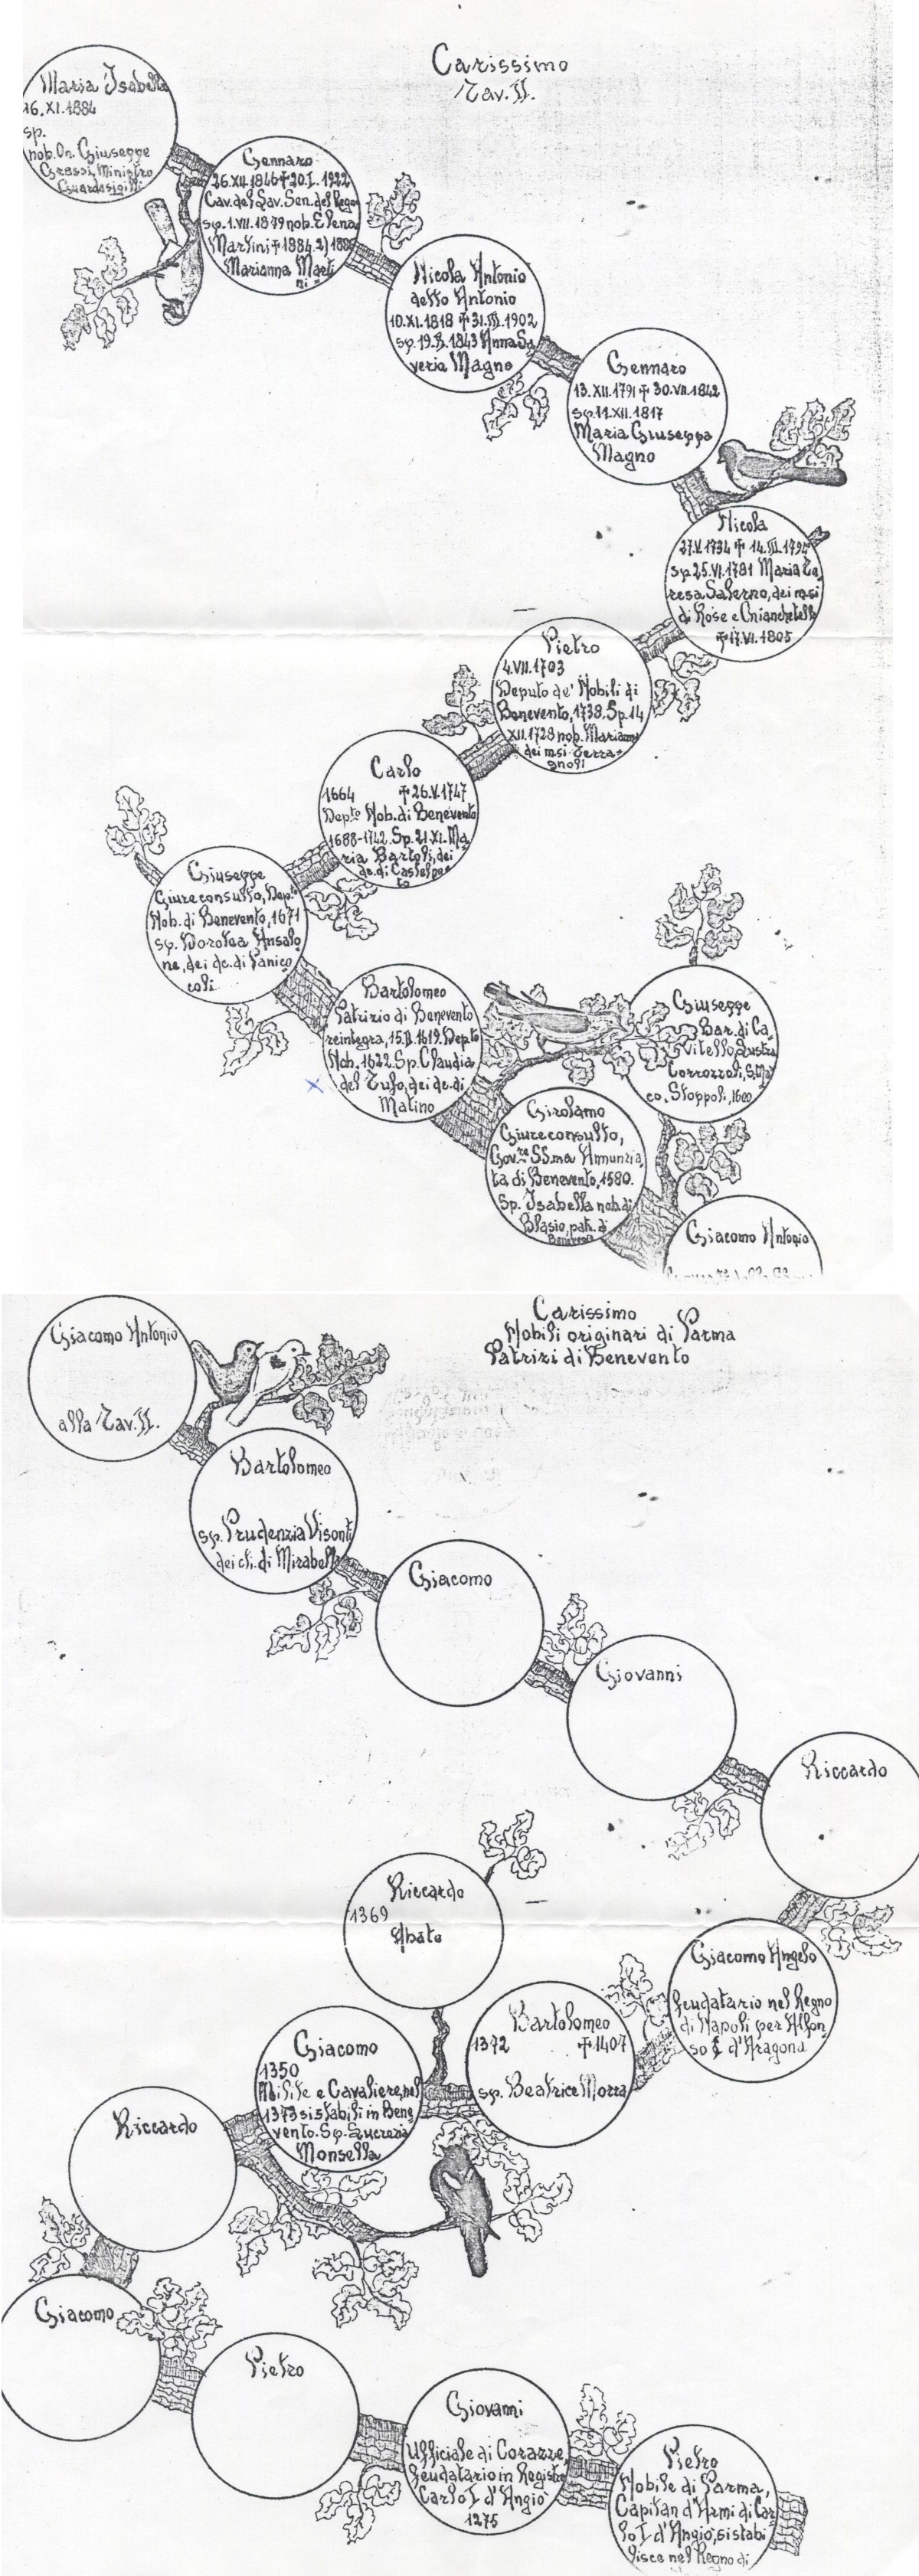 Carissimo
Tav. II.
Maria Isabella
16.XI.1884
sp.
nob. On. Giuseppe
Grassi, Ministro
Guardasigilli
Gennaro
26.XII.1846 ✝ 20.I.1922
Cav. del Lav. Sen. del Regno
sp. 1.VII.1879 nob. Elena
Martini ✝ 1884. 2)
Marianna Marti
ni
Nicola Antonio
detto Antonio
10.XI.1818 ✝ 31.III.1902
1843 Anna Sa
veria Magno
Gennaro
13.XII.1791 ✝ 30.VII.1842
sp. 11.XII.1817
Maria Giuseppa
Magno
Nicola
27.V.1734 ✝
sp. 25.VI.1781 Maria Te
resa Salerno, dei msi
di Rose e
✝ 17.VI.1805
Pietro
4.VII.1703
Deputo de' Nobili di
Benevento, 1738. Sp. 14
XII.1728 nob. Marianna
dei msi Terra=
gnoli
Carlo
1664 ✝ 26.V.1747
Depto Nob. di Benevento
1688-1742. Sp. 21.XI. Ma
ria Bartoli, dei
di Castelpo
to
Giuseppe
Giureconsulto, Depto
Nob. di Benevento, 1671
sp. Dorotea Ansalo
ne, dei dc. di Panico
coli.
Bartolomeo
Patrizio di Benevento
reintegra, 1619. Depto
Nob. 1622. Sp. Claudia
del Tufo, dei dc. di
Matino
Giuseppe
Bar. di Ca
Vitello,
Corrozzoli, S. Mar
co, Stoppoli, 1600
Girolamo
Giureconsulto,
Govre SS.ma Annunzia
ta di Benevento, 1580.
Sp. Isabella nob. di
Blasio, patr. di
Benevento
Giacomo Antonio
Carissimo
Nobili originari di Parma
Patrizi di Benevento
Giacomo Antonio
alla Tav. II.
Bartolomeo
sp. Prudenzia Visonti
dei cti. di Mirabella
Giacomo
Giovanni
Riccardo
Riccardo
1369
Abate
Giacomo Angelo
feudatario nel Regno
di Napoli per Alfon
so I d'Aragona
Bartolomeo
1372 ✝ 1407
sp. Beatrice Morra
Giacomo
1350
Milite e Cavaliere, nel
1373 si stabilì in Bene
vento. Sp. Lucrezia
Monsella
Riccardo
Giacomo
Pietro
Giovanni
Ufficiale di Corazze,
feudatario in Registro
Carlo I d'Angiò
1275
Pietro
Nobile di Parma,
Capitan d'Armi di Car
lo I d'Angiò, si stabi
lisce nel Regno di